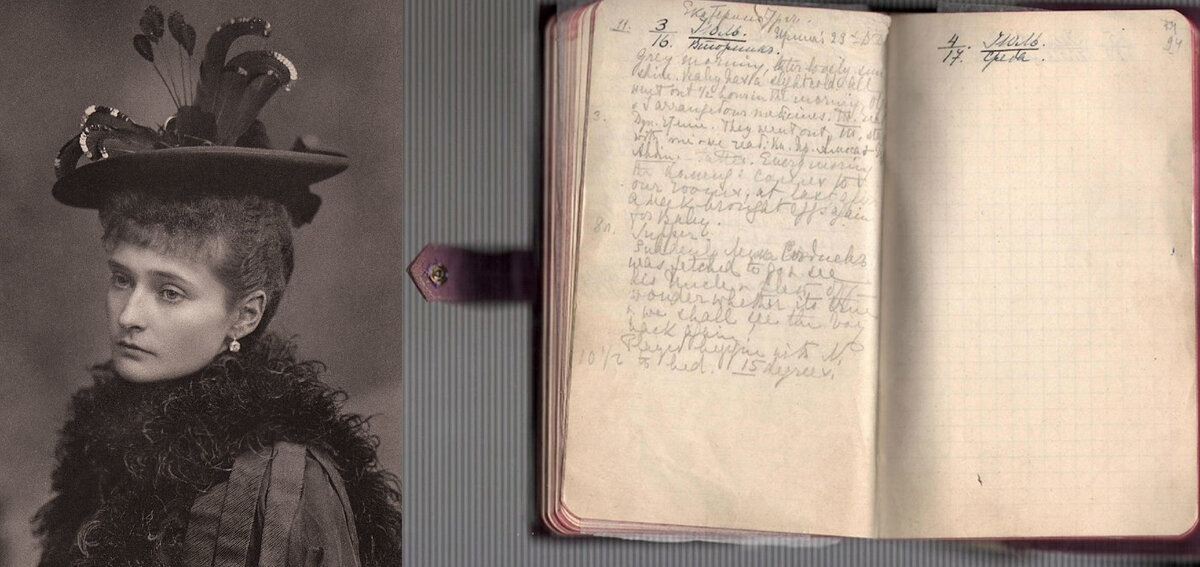 Екатеринбург.
11. 3/16 Июль. Irina's 23-BD
Вторникъ.
Grey morning, later lovely sun
shine. Baby has a slight cold. All
went out 1/2 hour in the morning, Ol
& I arranged our medicines. T. read
3. Spir. readg. They went out, T. stayed
with me & we read: Кн. пр. Амоса
Every morning
the Commd. comes to
our rooms, at last after
a week brought eggs again
for Baby.
8h. Supper.
Suddenly Лёнька Седневъ
was fetched to go & see
his uncle & flew off
wonder whether its true
& we shall see the boy
back again!
Played bezique with N.
10 1/2 to bed. 15 degrees.
4/17. Июль.
Среда.